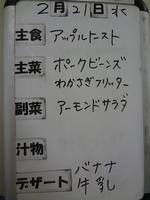 2月21日水
主食 アップルトースト
主菜 ポークビーンズ
わかさぎフリッター
副菜 アーモンドサラダ
汁物
デザート バナナ
牛乳